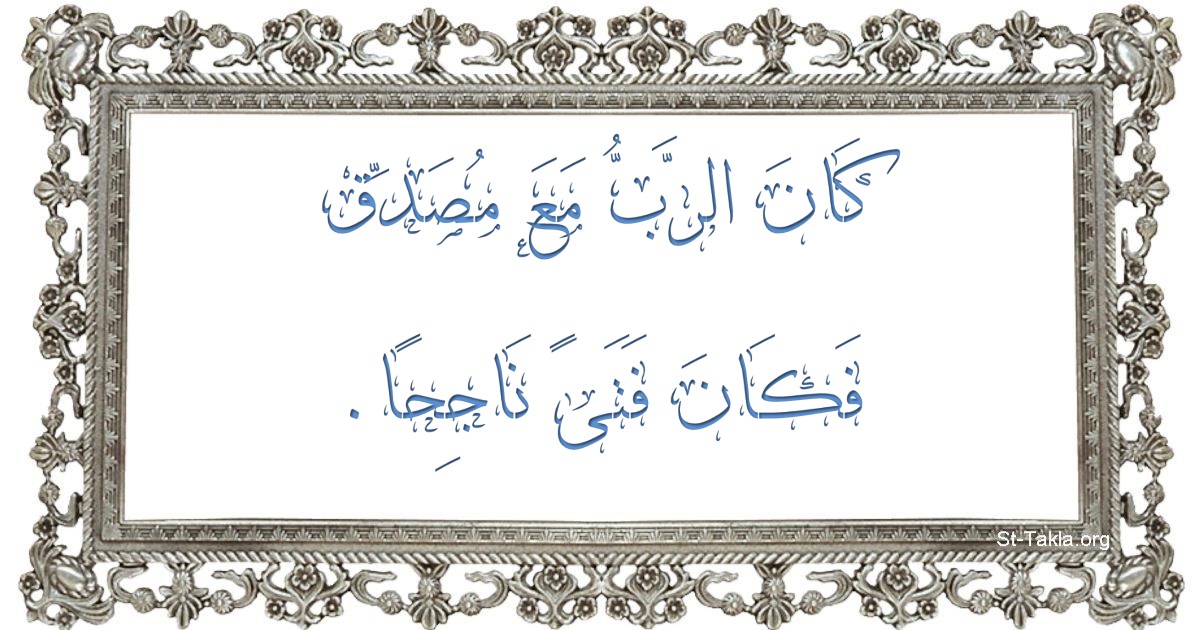 كَانَ الرَّبُّ مَعَ مُصَدّقْ
فَكَانَ فَتَىً نَاجِحًا.
St-Takla.org